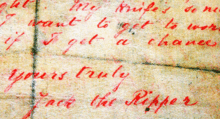 ght My knife's so ni
I want to get to wor
if I get a chance.
Yours truly
Jack the Ripper